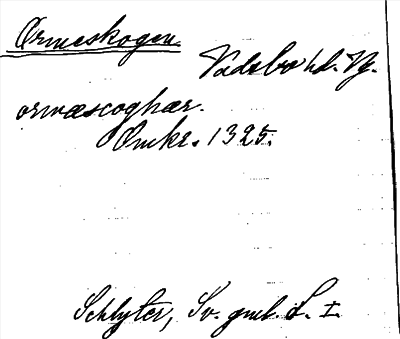 Ormeskogen.
Vadsbo hd. Vg.
ormæscoghær.
Omkr. 1325.
Schlyter, Sv. gml. L. I.